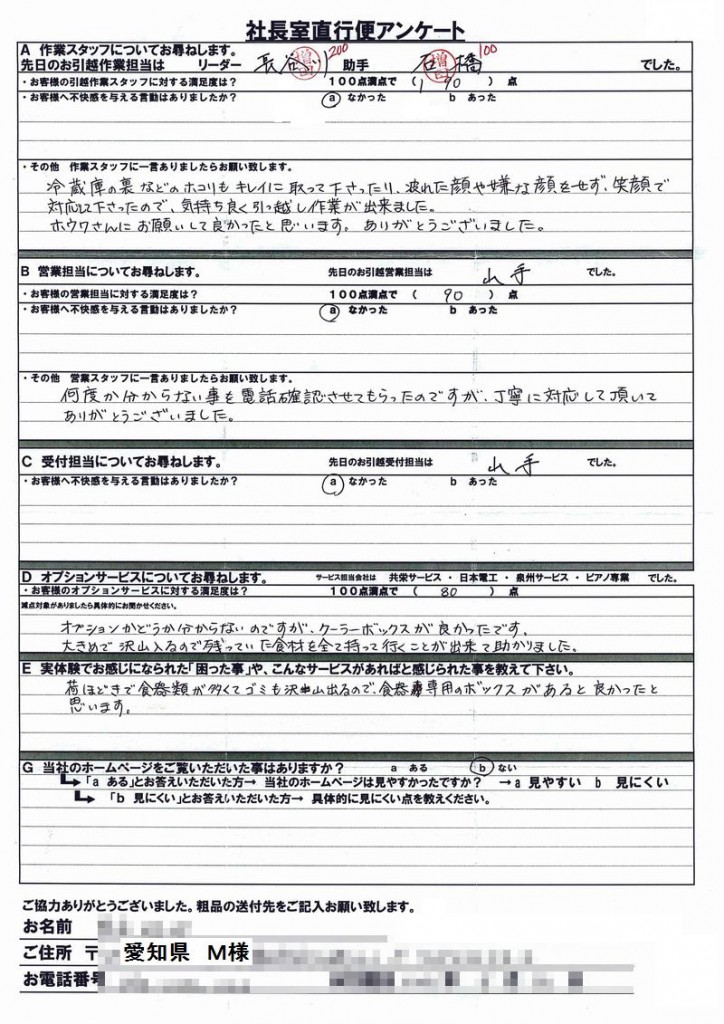 社長室直行便アンケート
A 作業スタッフについてお尋ねします。
先日のお引越作業担当は リーダー 長谷川 200 助手 石橋 100 でした。
・お客様の引越作業スタッフに対する満足度は? 100点満点で ( 90 ) 点
・お客様へ不快感を与える言動はありましたか? a なかった b あった
・その他 作業スタッフに一言ありましたらお願い致します。
冷蔵庫の裏などのホコリもキレイに取って下さったり、疲れた顔や嫌な顔をせず、笑顔で
対応して下さったので、気持ち良く引っ越し作業が出来ました。
ホウワさんにお願いして良かったと思います。ありがとうございました。
B 営業担当についてお尋ねします。 先日のお引越営業担当は 山手 でした。
・お客様の営業担当に対する満足度は? 100点満点で ( 90 ) 点
・お客様へ不快感を与える言動はありましたか? a なかった b あった
・その他 営業スタッフに一言ありましたらお願い致します。
何度か分からない事を電話確認させてもらったのですが、丁寧に対応して頂いて
ありがとうございました。
C 受付担当についてお尋ねします。 先日のお引越受付担当は 山手 でした。
・お客様へ不快感を与える言動はありましたか? a なかった b あった
D オプションサービスについてお尋ねします。 サービス担当会社は 共栄サービス ・ 日本電工 ・ 泉州サービス ・ ピアノ専業 でした。
・お客様のオプションサービスに対する満足度は? 100点満点で ( 80 ) 点
減点対象がありましたら具体的にお聞かせください。
オプションかどうか分からないのですが、クーラーボックスが良かったです。
大きめで沢山入るので残っていた食材を全て持って行くことが出来て助かりました。
E 実体験でお感じになられた「困った事」や、こんなサービスがあればと感じられた事を教えて下さい。
荷ほどきで食器類が多くてゴミも沢山出るので、食器専用のボックスがあると良かったと
思います。
G 当社のホームページをご覧いただいた事はありますか? a ある b ない
「a ある」とお答えいただいた方→ 当社のホームページは見やすかったですか? →a 見やすい b 見にくい
「b 見にくい」とお答えいただいた方→ 具体的に見にくい点を教えください。
ご協力ありがとうございました。粗品の送付先をご記入お願い致します。
お名前
ご住所 〒 愛知県 M様
お電話番号